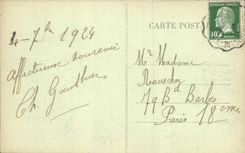 4-7bre 1924
Affectueux souvenir
Ch. Gauthier
CARTE POSTALE
Mr Madame
79 Bd Barbès
Paris 18eme
10